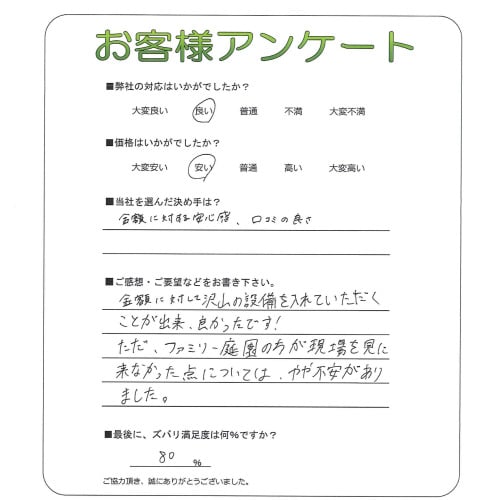 お客様アンケート
■弊社の対応はいかがでしたか？
大変良い 良い 普通 不満 大変不満
■価格はいかがでしたか？
大変安い 安い 普通 高い 大変高い
■当社を選んだ決め手は？
金額に対する安心感、口コミの良さ
■ご感想・ご要望などをお書き下さい。
金額に対して沢山の設備を入れていただく
ことが出来、良かったです！
ただ、ファミリー庭園の方が現場を見に
来なかった点については、やや不安があり
ました。
■最後に、ズバリ満足度は何％ですか？
80 ％
ご協力頂き、誠にありがとうございました。